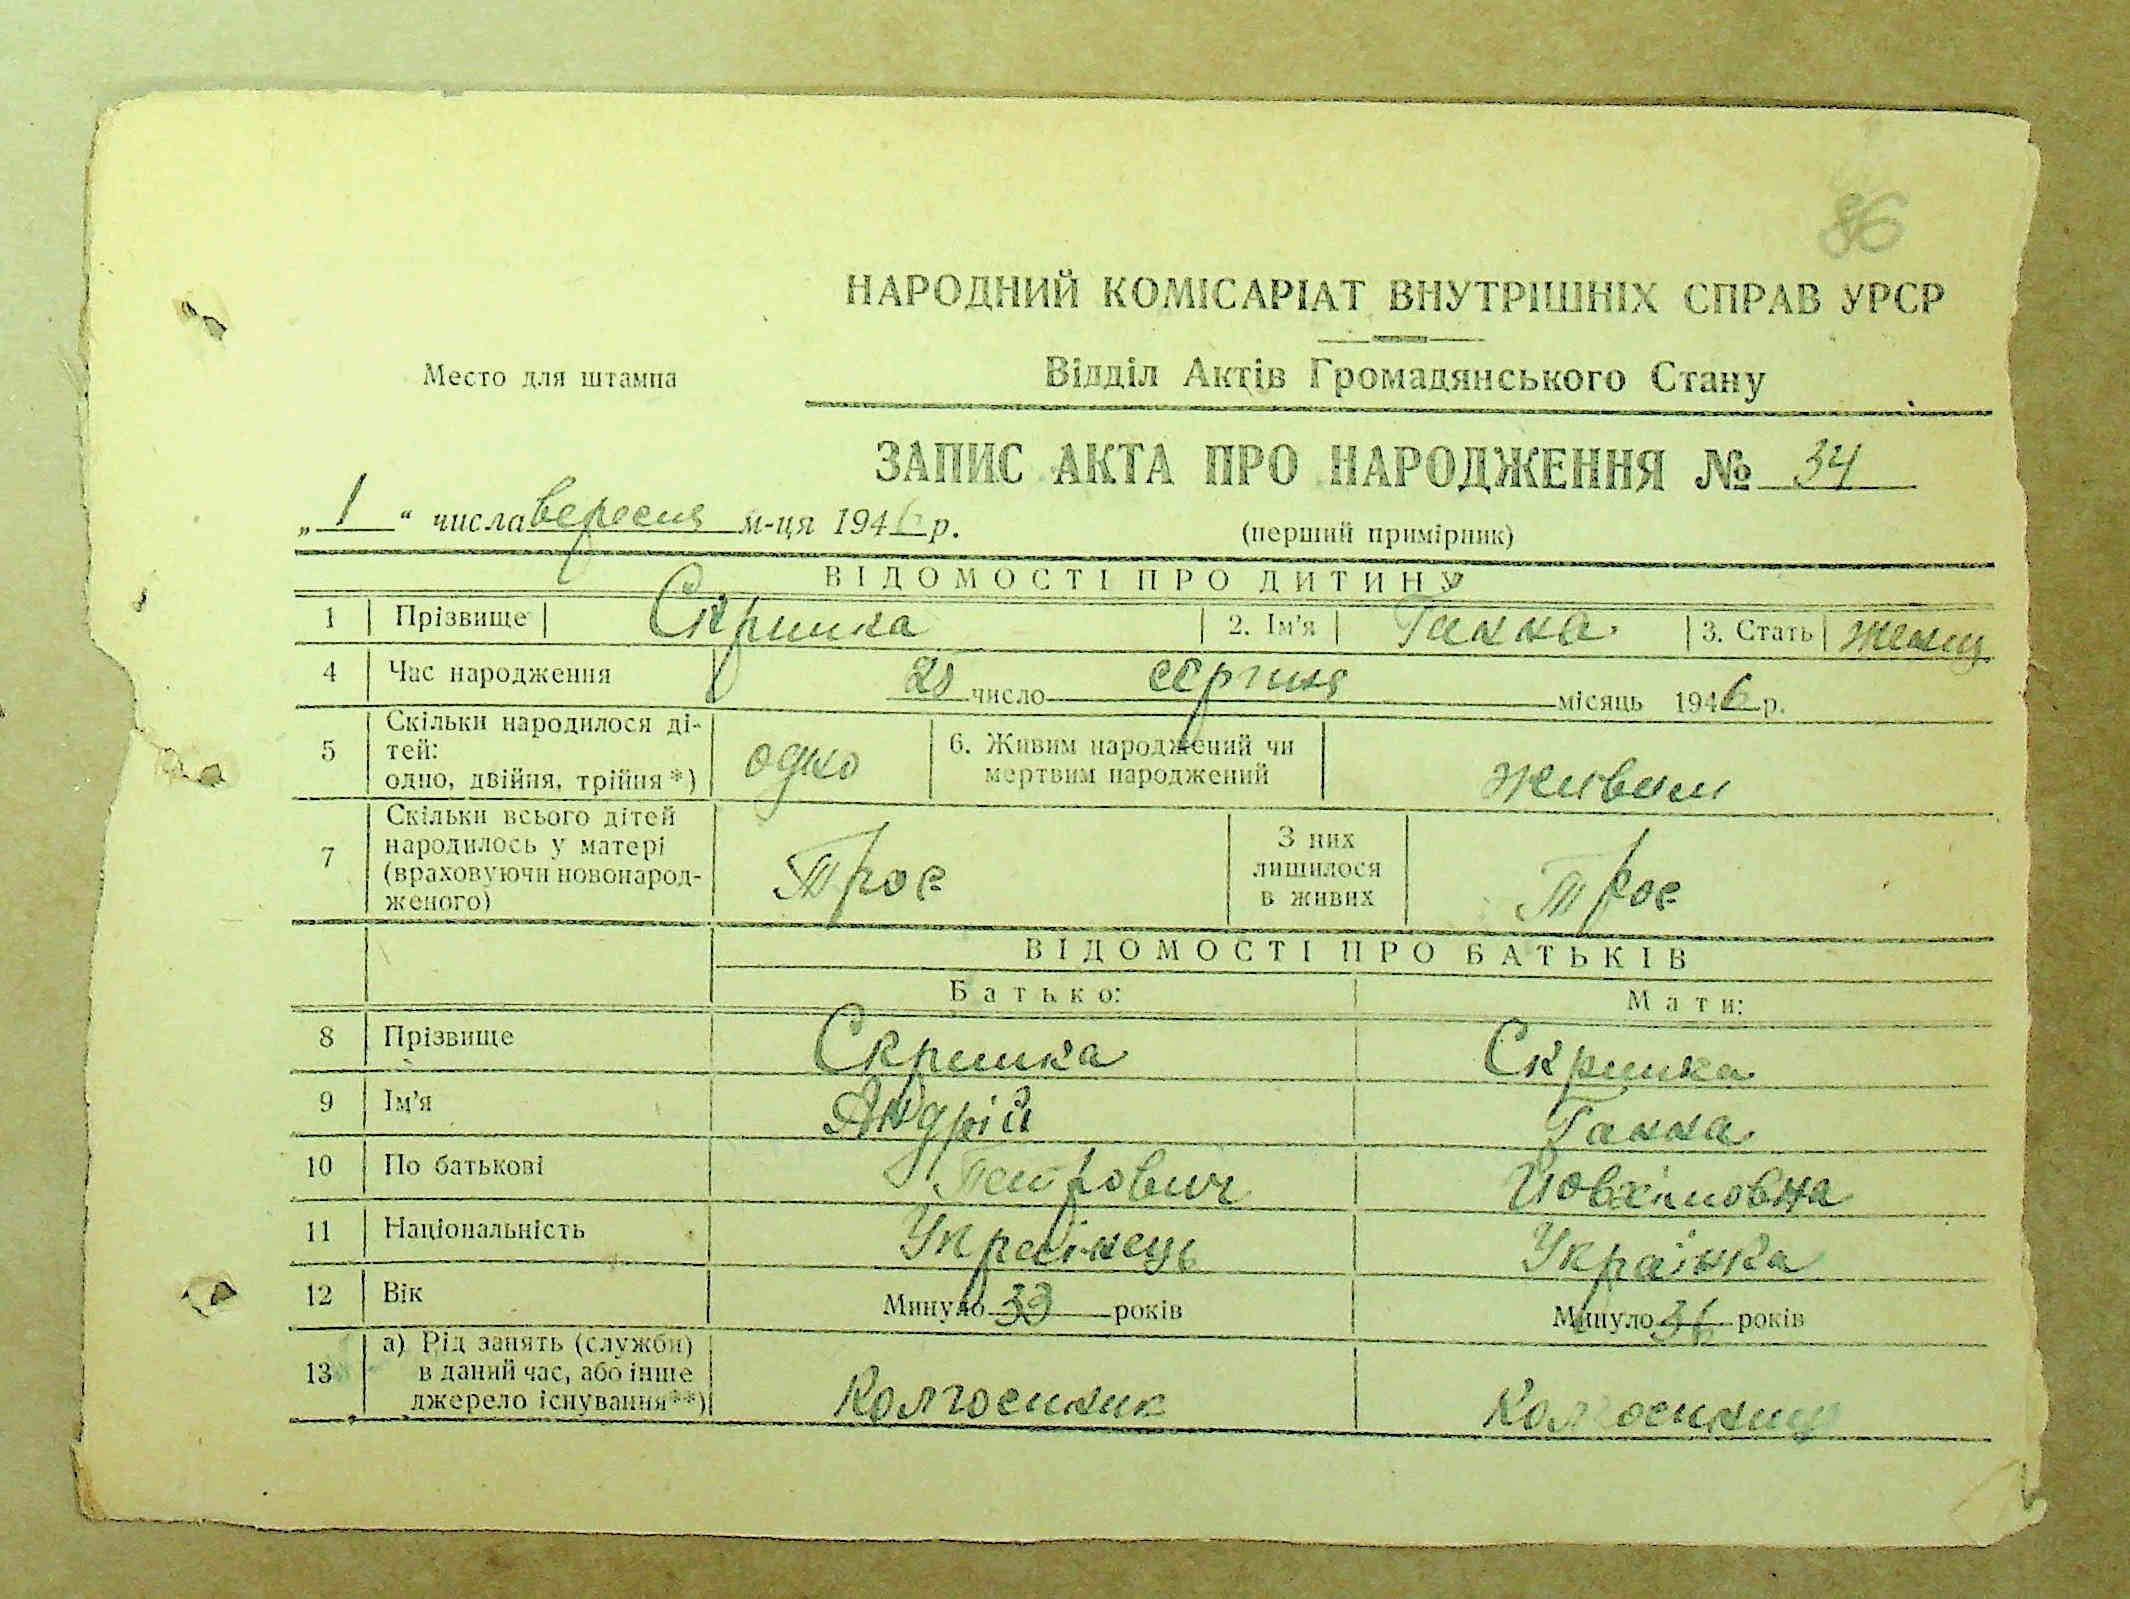 86
НАРОДНИЙ КОМІСАРІАТ ВНУТРІШНІХ СПРАВ УРСР
Место для штампа
Відділ Актів Громадянського Стану
ЗАПИС АКТА ПРО НАРОДЖЕННЯ № 34
„ 1 “ числа вересня м-ця 1946 р.
(перший примірник)
ВІДОМОСТІ ПРО ДИТИНУ
1 Прізвище Скришка 2. Ім'я Ганна 3. Стать жіноч
4 Час народження 25 число серпня місяць 1946 р.
5 Скільки народилося ді-
тей:
одно, двійня, трійня *) одно
6. Живим народжений чи
мертвим народжений живим
7 Скільки всього дітей
народилось у матері
(враховуючи новонарод-
женого) Троє
З них
лишилося
в живих Троє
ВІДОМОСТІ ПРО БАТЬКІВ
Батько: Мати:
8 Прізвище Скришка Скришка
9 Ім'я Андрій Ганна
10 По батькові Петрович Йовхимовна
11 Національність Українець Українка
12 Вік Минуло 33 років Минуло 36 років
13 а) Рід занять (служби)
в даний час, або інше
джерело існування**) Колгоспник Колгоспниц